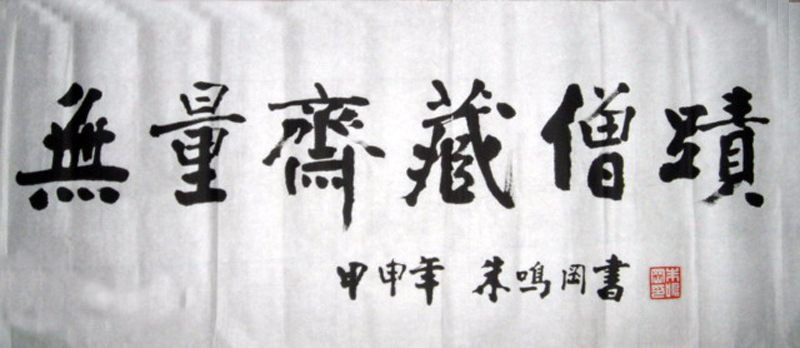 無量齋藏僧蹟
甲申年 朱鳴岡書